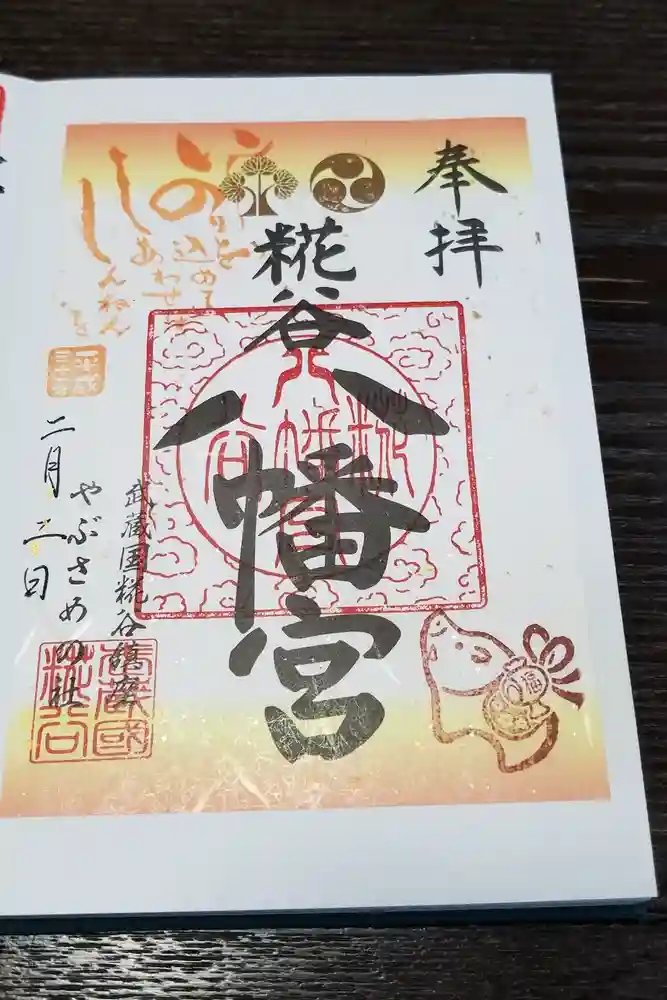 奉拝
糀谷
八幡宮
武蔵国糀谷鎮座
やぶさめの社
二月三日
いのりを
込めて
あわせ
しんねん
平成
三十年
糀谷
八幡宮
武蔵國
糀谷
福